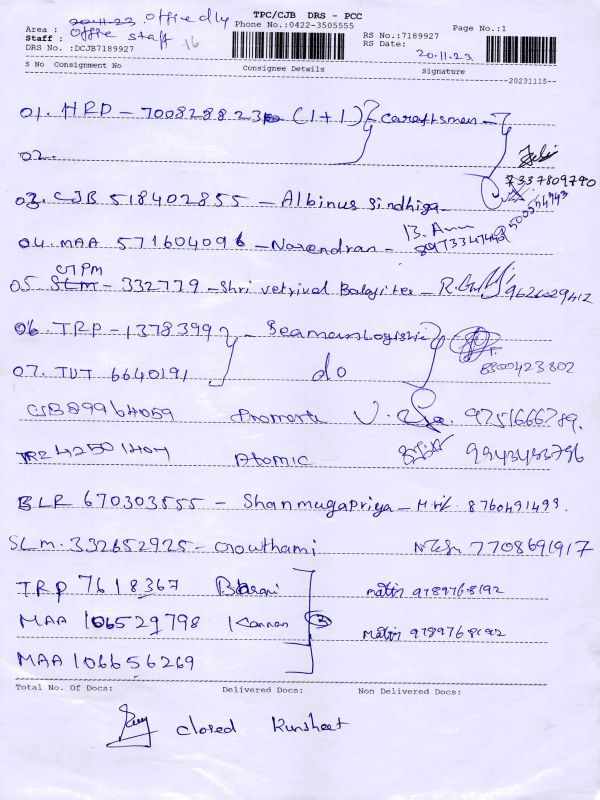 TPC/CJB DRS - PCC
Phone No.:0422-3505555
Page No.:1
Area : office dly
Staff : office staff 16
DRS No. :DCJB7189927
RS No.:7189927
RS Date: 20.11.23
S No Consignment No Consignee Details Signature
20231115
01. HRP - 700828823 (1+1) Careftsmen
02.
7337809790
03. CJB 518402855 - Albinus Sindhiga
04. MAA 571604096 - Narendran - B. Anu
8973347443
CJ PM
05 SLM - 332779 - Shri vetrivel Balajites - 9626029412
06 TRP - 1378399 - Seamens Logistic
8300423302
07. TUT 6640191 do
CJB 89964059 Promark 9751666789.
TRZ 42501404 Atomic 9943433796
BLR 670303555 - Shanmugapriya - 8760491493.
SLM. 332652925 - Gowthami 7708691917
TRP 7618367 Barani 9789768192
MAA 106529798 Kannan 3 9789768192
MAA 106656269
Total No. Of Docs: Delivered Docs: Non Delivered Docs:
closed Runsheet